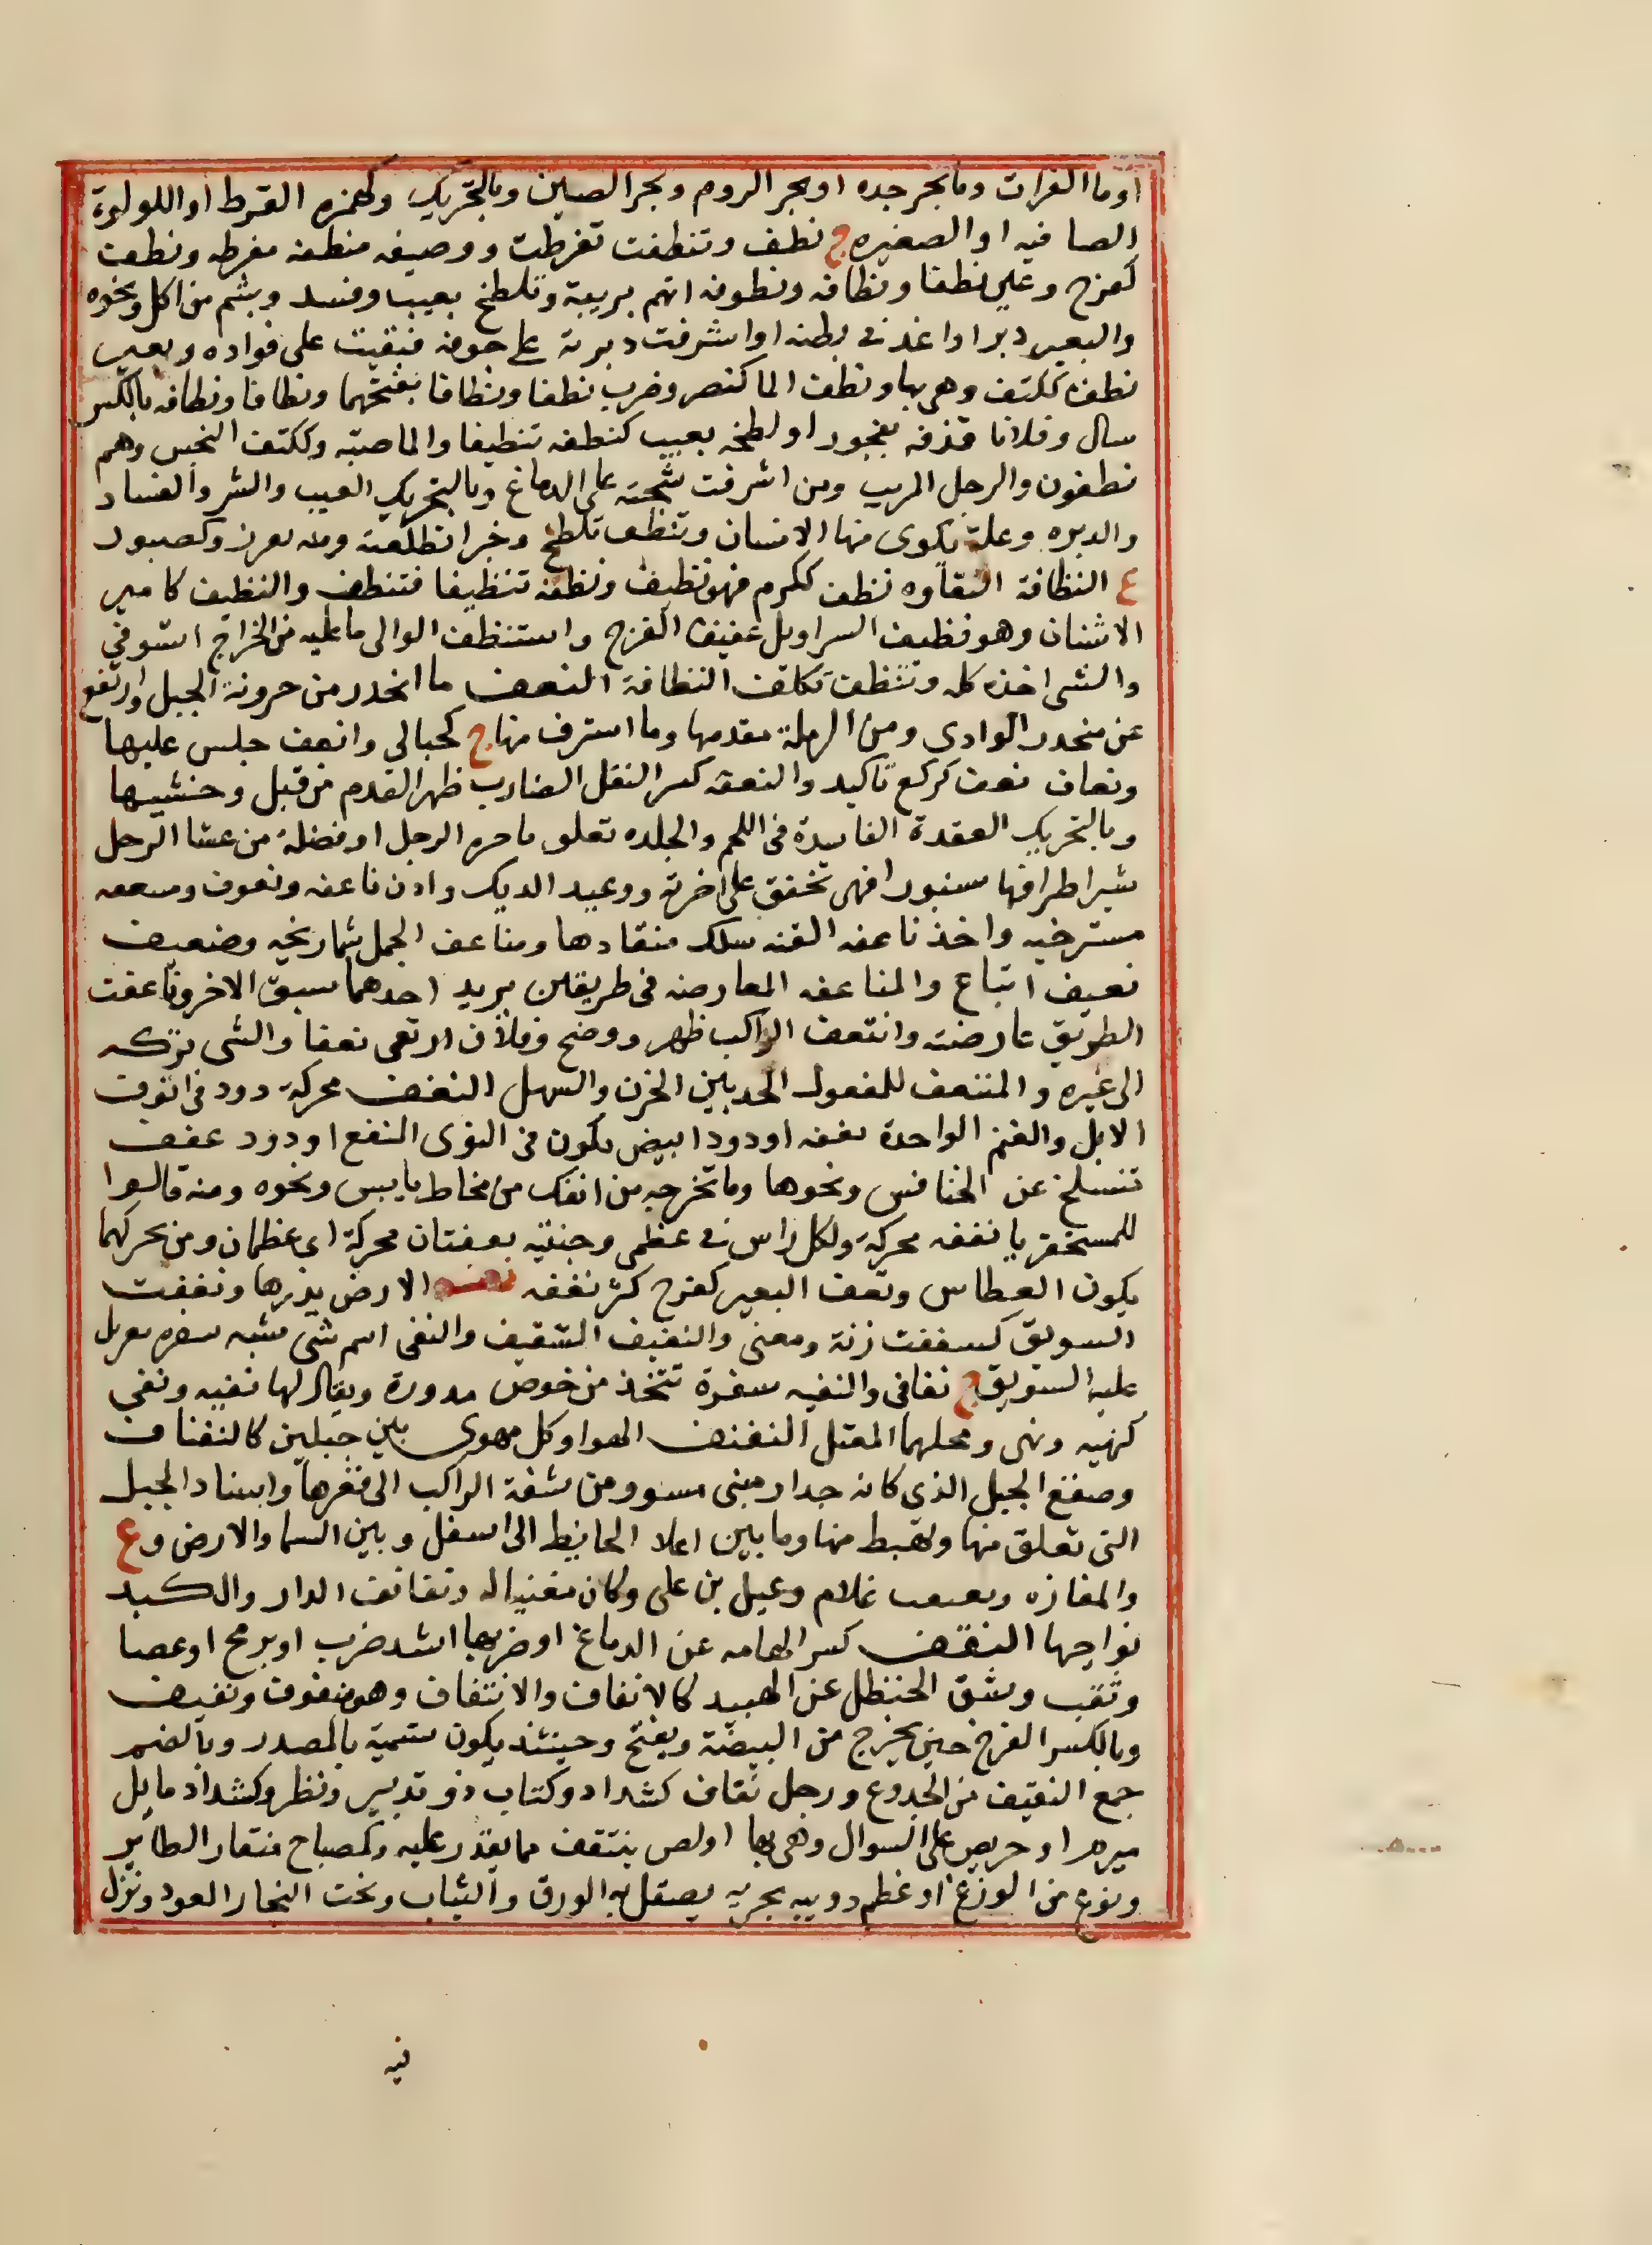 اوما الفرات وما بحر جده او بحر الروم وبحر الصين وبالتحريك وكهمزه القرط او اللولوة
الصافيه او الصغيره ج نطف وتنطفت تقرطت ووصيفه منطفه مقرطه ونطف
كفرح وعلى نطفا ونطافه ونطوفه اتهم بريبة وتلطخ بعيب وفسد وبشم من اكل ونحوه
والبعير دبر او اغد في بطنه او اشرفت دبرته على جوفه فنقبت على فواده وبعير
نطف ككتف وهي بها ونطف الما كنصر وضرب نطفا ونطافا بفتحهما ونطافا ونطافه بالكسر
سال وفلانا قذفه بفجور او لطخه بعيب كنطفه تنطيفا والما صبه وككتف النجس وهم
نطفون والرجل المريب ومن اشرفت شجته على الدماغ وبالتحريك العيب والشر والفساد
والدبره وعلة يكوى منها الانسان وتنطف تلطخ وخبرا تطلعه ومنه تعزز وكصبور
ع النظافة النقاوه نظف ككرم فهو نظيف ونظفه تنظيفا فتنظف والنظيف كامير
الاشنان وهو نظيف السراويل عفيف الفرج واستنظف الوالى ما عليه من الخراج استوفى
والشى اخذه كله وتنظف تكلف النظافة النعف ما انحدر من حزونة الجبل وارتفع
عن منحدر الوادي ومن الرملة مقدمها وما استرق منها ج كحبالى وانعف جلس عليها
ونعاف نعف كركع تاكيد والنعفه كسر النعل الضارب ظهر القدم من قبل وحشيها
وبالتحريك العقدة الفاسدة فى اللحم والجلده تعلق باخره الرحل او فضلة من غشا الرحل
تسير اطرافها سيورا فهى تخفق على اخرته ورعيد الديك واذن ناعفه ونعوف ومنعفه
مسترخيه واخذ ناعفه القنه سلك منقادها ومناعف الجبل شماريخه وضعيف
نعيف اتباع والمناعفه المعارضه فى طريقين يريد احدهما سبق الاخر وناعفت
الطريق عارضته وانتعف الراكب ظهر ووضح وفلان ارتقى نعفا والشى تركه
الى غيره والمنتعف للمفعول الحد بين الحزن والسهل النغف محركة دود في انوف
الابل والغنم الواحدة نغفه او دود ابيض يكون في النوى المنقع او دود عقف
تنسلخ عن الخنافس ونحوها وما تخرجه من انفك من مخاط يابس ونحوه ومنه قالوا
للمستحقر يا نغفه محركة ولكل راس في عظمى وجنتيه نغفتان محركة اى عظمان ومن تحركهما
يكون العطاس ونغف البعير كفرح كثر نغفه نفف الارض بذرها ونففت
السويق كسففت زنة ومعنى والنفيف السفيف والنفى اسم شى مشبه سفره تعمل
عليه السويق ج نفافى والنفيه سفرة تتخذ من خوص مدورة ويقال لها نفيه ونفى
كنهيه ونهى ومحلهما المعتل النفنف الهوا وكل مهوى بين جبلين كالنفناف
وصقع الجبل الذي كانه جدار مبنى مستو ومن شفة الراكب الى قعرها واسناد الجبل
التى تعلق منها وتهبط منها وما بين اعلا الحايط الى اسفل وبين السما والارض وع
والمفازه ونفنف غلام دعبل بن على وكان مغنيا له ونفانف الدار والكبد
نواحيها النقف كسر الهامه عن الدماغ او ضربها اشد ضرب او برمح او عصا
وثقب وشق الحنظل عن الهبيد كالانقاف والانتقاف وهو منقوف ونقيف
وبالكسر الفرخ حين يخرج من البيضة ويفتح وحينئذ يكون تسمية بالمصدر وبالضم
جمع النقيف من الجدوع ورجل نقاف كشداد وكتاب ذو تدبير ونظر وكشداد سايل
مبرم او حريص على السوال وهى بها او لص ينتقف ما يقدر عليه وكمصباح منقار الطاير
ونوع من الوزغ او عظم دويبه بحريه يصقل به الورق والثياب ونحت النجار العود ونزل
فيه